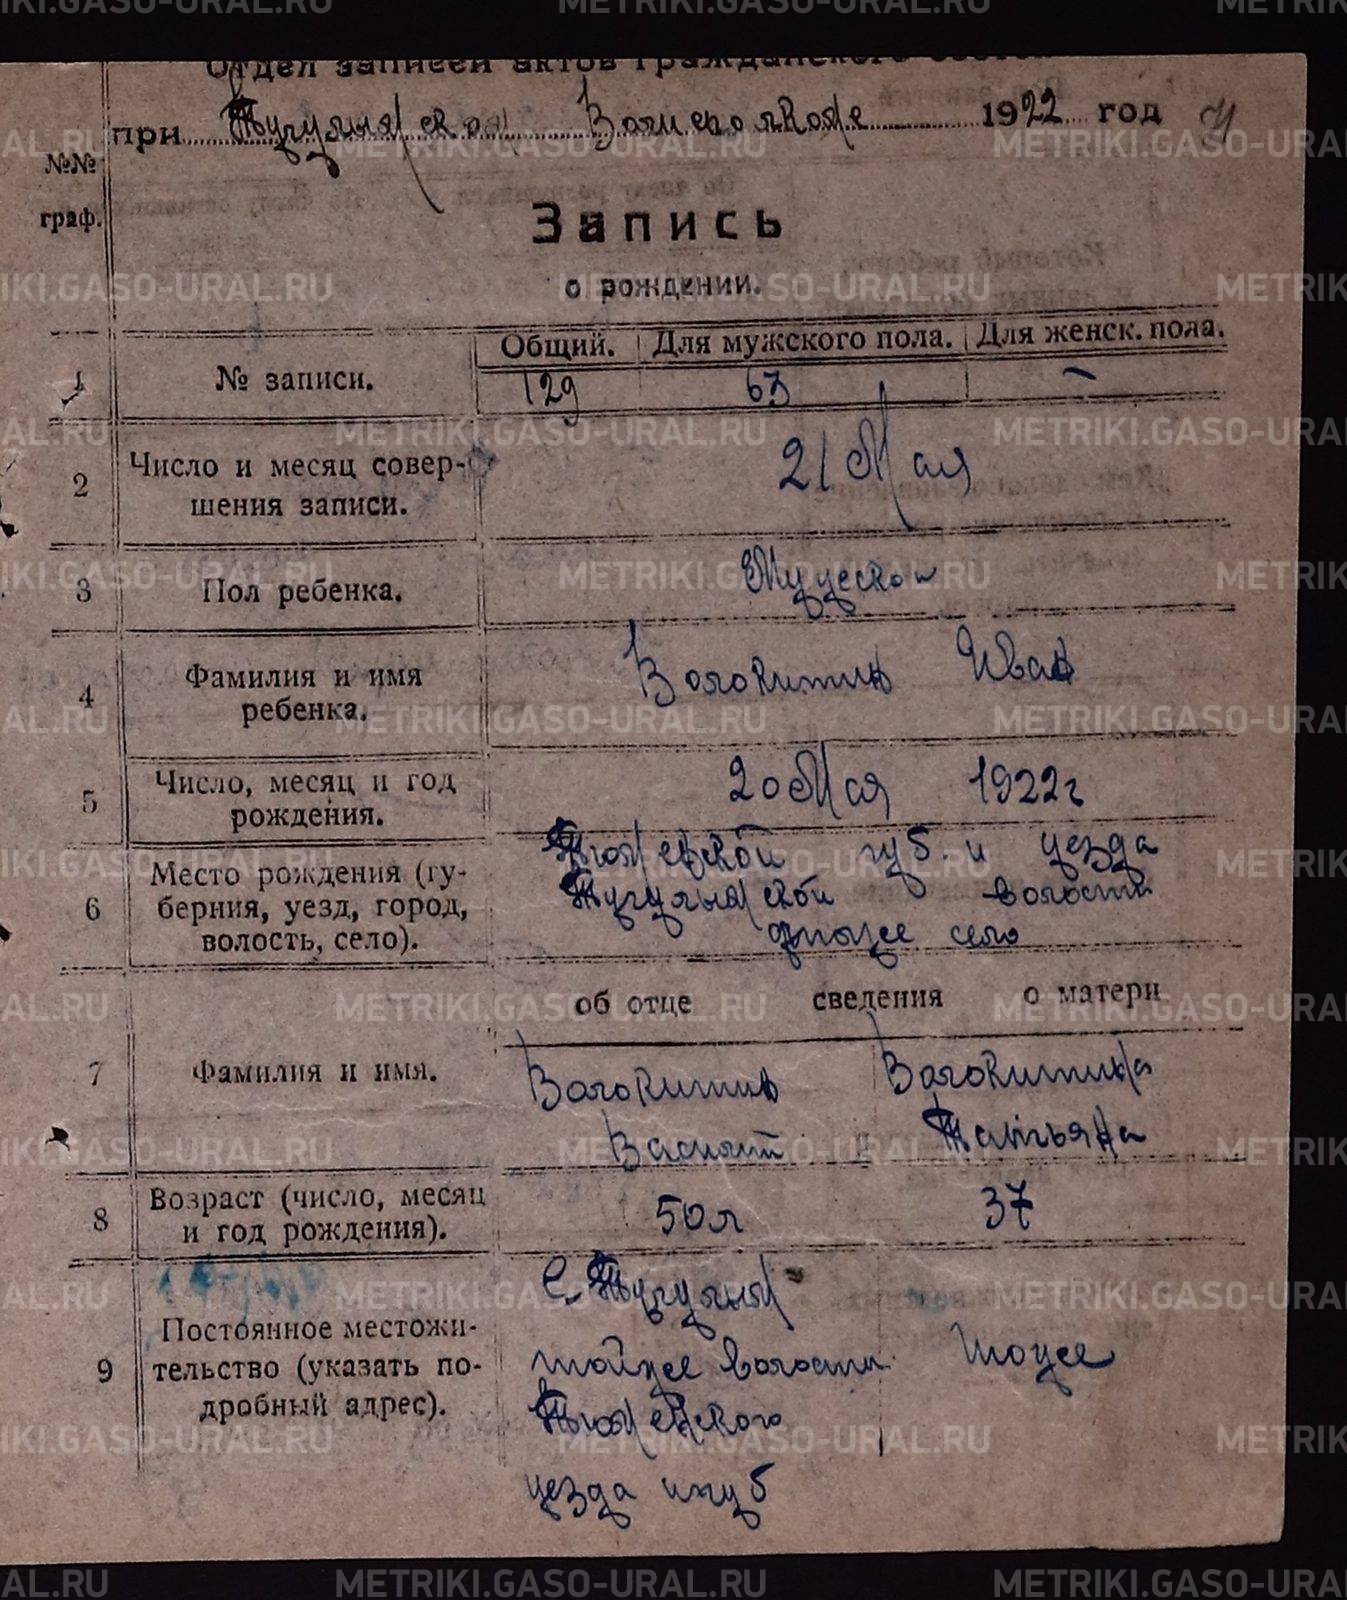 Отдел записей актов гражданского состоя
при Тугулымской Волисполкоме 1922 год
№№ граф.
Запись
о рождении.
Общий. Для мужского пола. Для женск. пола.
1 № записи. 129 63 -
2 Число и месяц совер-
шения записи. 21 Мая
3 Пол ребенка. Мужеской
4 Фамилия и имя
ребенка. Волокитин Иван
5 Число, месяц и год
рождения. 20 Мая 1922 г
6 Место рождения (гу-
берния, уезд, город,
волость, село).
Тюменской губ. и уезда
Тугулымской волости
тоже село
об отце сведения о матери
7 Фамилия и имя.
Волокитин Волокитина
Татьяна
8 Возраст (число, месяц
и год рождения). 50 л 37
9 Постоянное местожи-
тельство (указать по-
дробный адрес).
С. Тугулым
тойже волости тоже
Тюменского
уезда и губ
METRIKI.GASO-URAL.RU